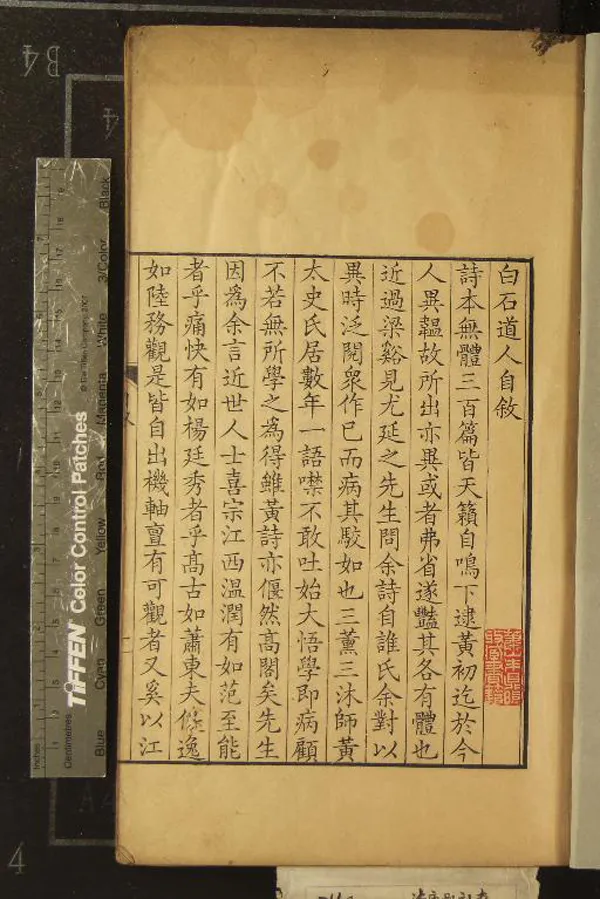 白石道人自敘
詩本無體三百篇皆天籟自鳴下逮黃初迄於今
人異韞故所出亦異或者弗省遂豔其各有體也
近過梁谿見尤延之先生問余詩自誰氏余對以
異時泛閱衆作已而病其駁如也三薰三沐師黃
太史氏居數年一語噤不敢吐始大悟學即病顧
不若無所學之為得雖黃詩亦偃然高閣矣先生
因為余言近世人士喜宗江西温潤有如范至能
者乎痛快有如楊廷秀者乎高古如蕭東夫俊逸
如陸務觀是皆自出機軸亶有可觀者又奚以江
B4
4
4
TIFFEN Color Control Patches
© The Tiffen Company, 2007
Inches
Centimetres
Blue
Cyan
Green
Yellow
Red
Magenta
White
3/Color
Black